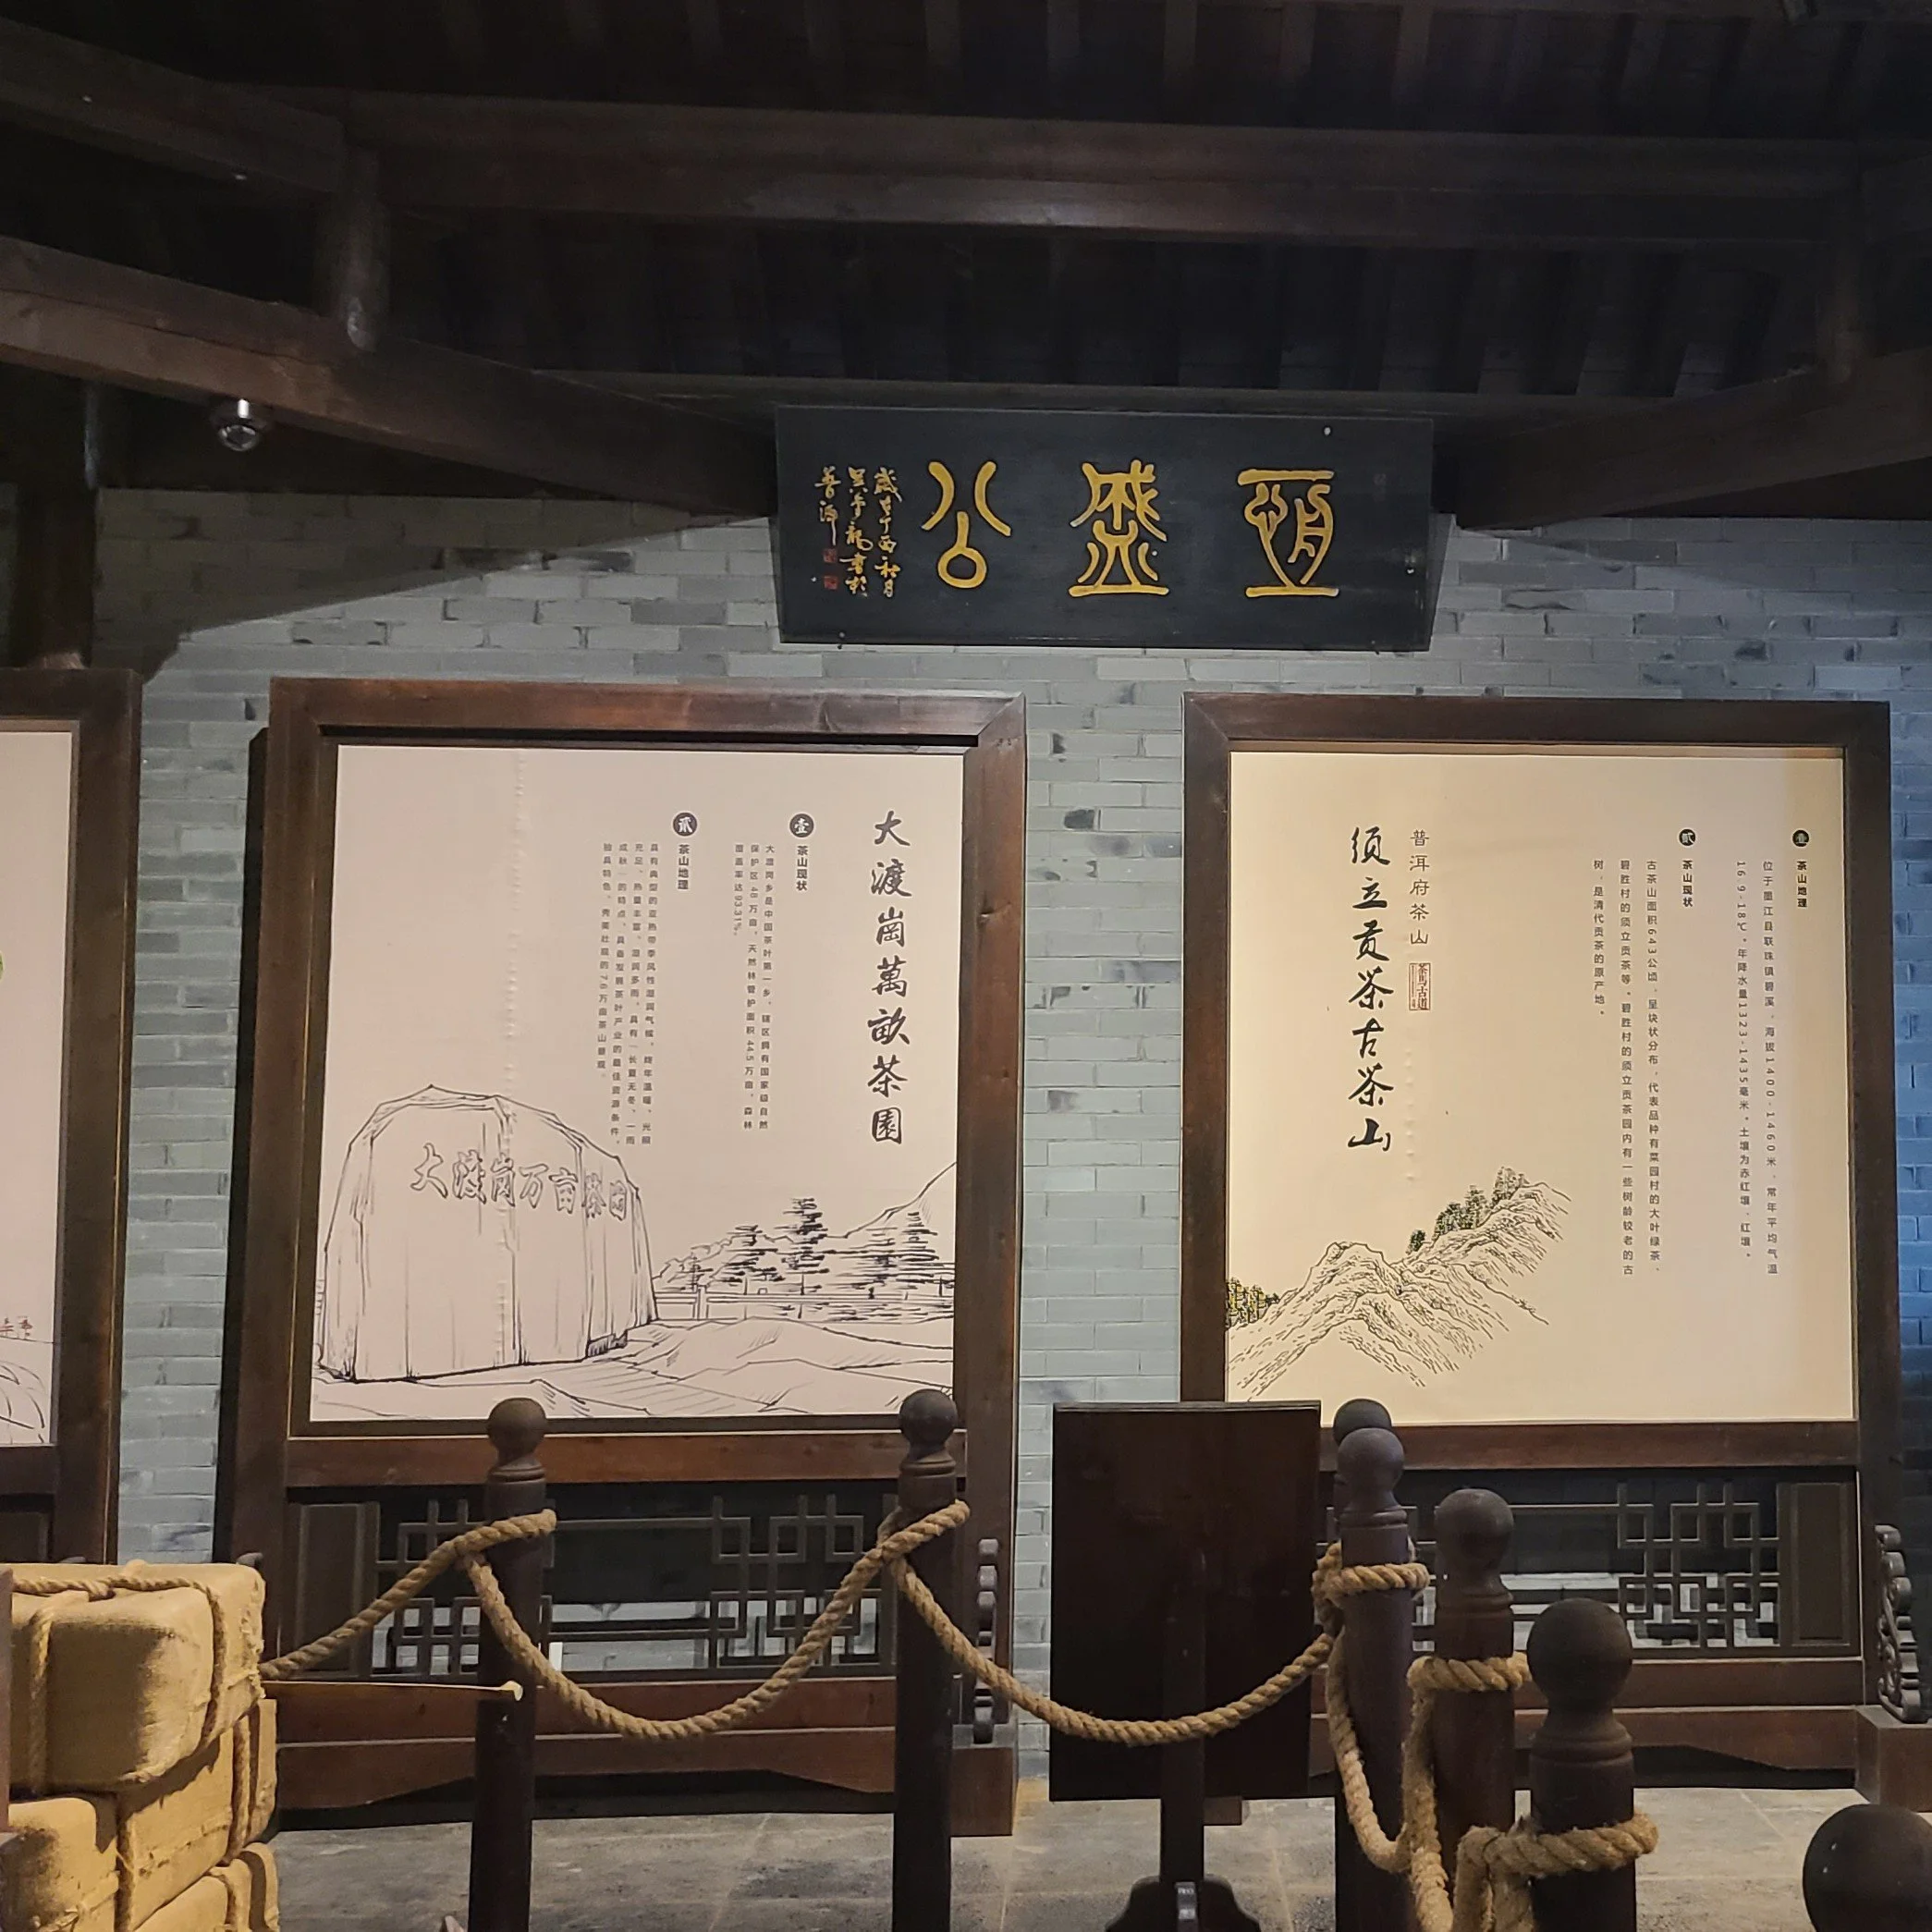 恒盛公
歲在丁酉秋月
普洱
壹
茶山地理
位于墨江县联珠镇碧溪，海拔1400-1460米，常年平均气温
16.9-18℃。年降水量1323-1435毫米。土壤为赤红壤、红壤。
贰
茶山现状
古茶山面积643公顷，呈块状分布，代表品种有菜园村的大叶绿茶、
碧胜村的须立贡茶等。碧胜村的须立贡茶园内有一些树龄较老的古
树，是清代贡茶的原产地。
普洱府茶山
茶馬古道
须立贡茶古茶山
大渡崗萬畝茶園
壹
茶山现状
大渡岗乡是中国茶叶第一乡，辖区拥有国家级自然
保护区48万亩，天然林管护面积44.5万亩，森林
覆盖率达93.31%。
贰
茶山地理
具有典型的亚热带季风性湿润气候，终年温暖、光照
充足、热量丰富、湿润多雨，具有"长夏无冬、一雨
成秋"的特点，具备发展茶叶产业的最佳资源条件，
独具特色、秀美壮观的7.6万亩茶山景观。
大渡岗万亩茶园